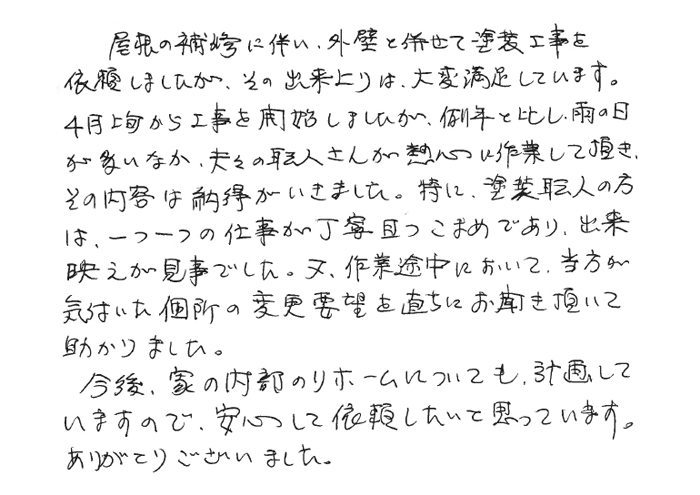 屋根の補修に伴い、外壁と併せて塗装工事を
依頼しましたが、その出来上りは、大変満足しています。
4月上旬から工事を開始しましたが、例年と比し、雨の日
が多いなか、夫々の職人さんが熱心に作業して頂き、
その内容は納得がいきました。特に、塗装職人の方
は、一つ一つの仕事が丁寧且つこまめであり、出来
映えが見事でした。又、作業途中において、当方が
気付いた個所の変更要望を直ちにお聞き頂いて
助かりました。
今後、家の内部のリホームについても、計画して
いますので、安心して依頼したいと思っています。
ありがとうございました。